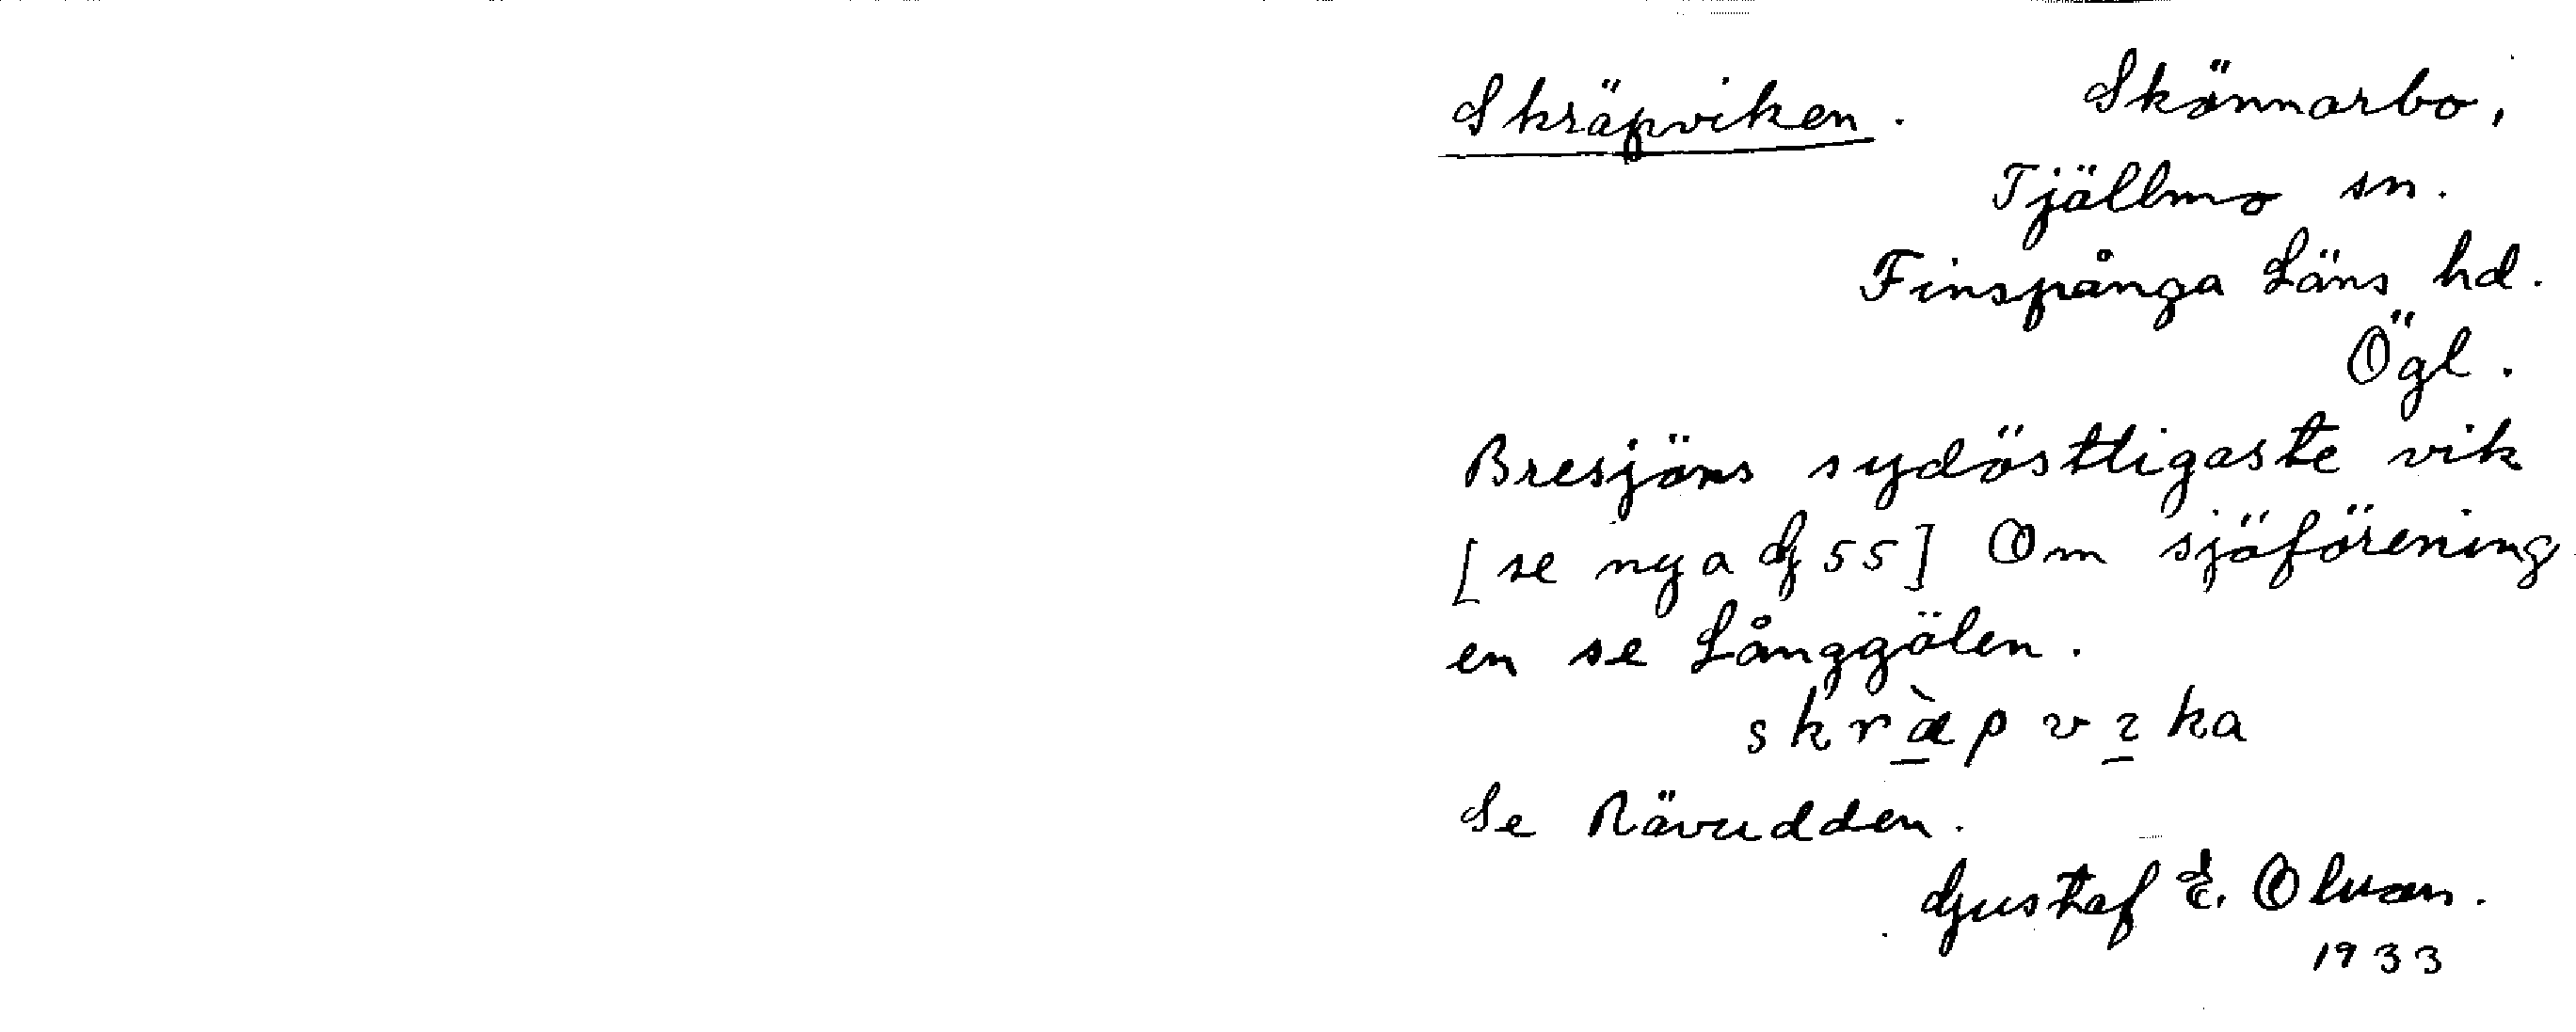 Skräpviken. Skönnarbo,
Tjällmo sn.
Finspånga Läns hd.
Ögl.
Bresjöns sydöstligaste vik
[se nya G 55] Om sjöförening
en se Långgölen.
skræ̀pvıka
Se Rävudden.
Gustaf E. Olvan.
1933